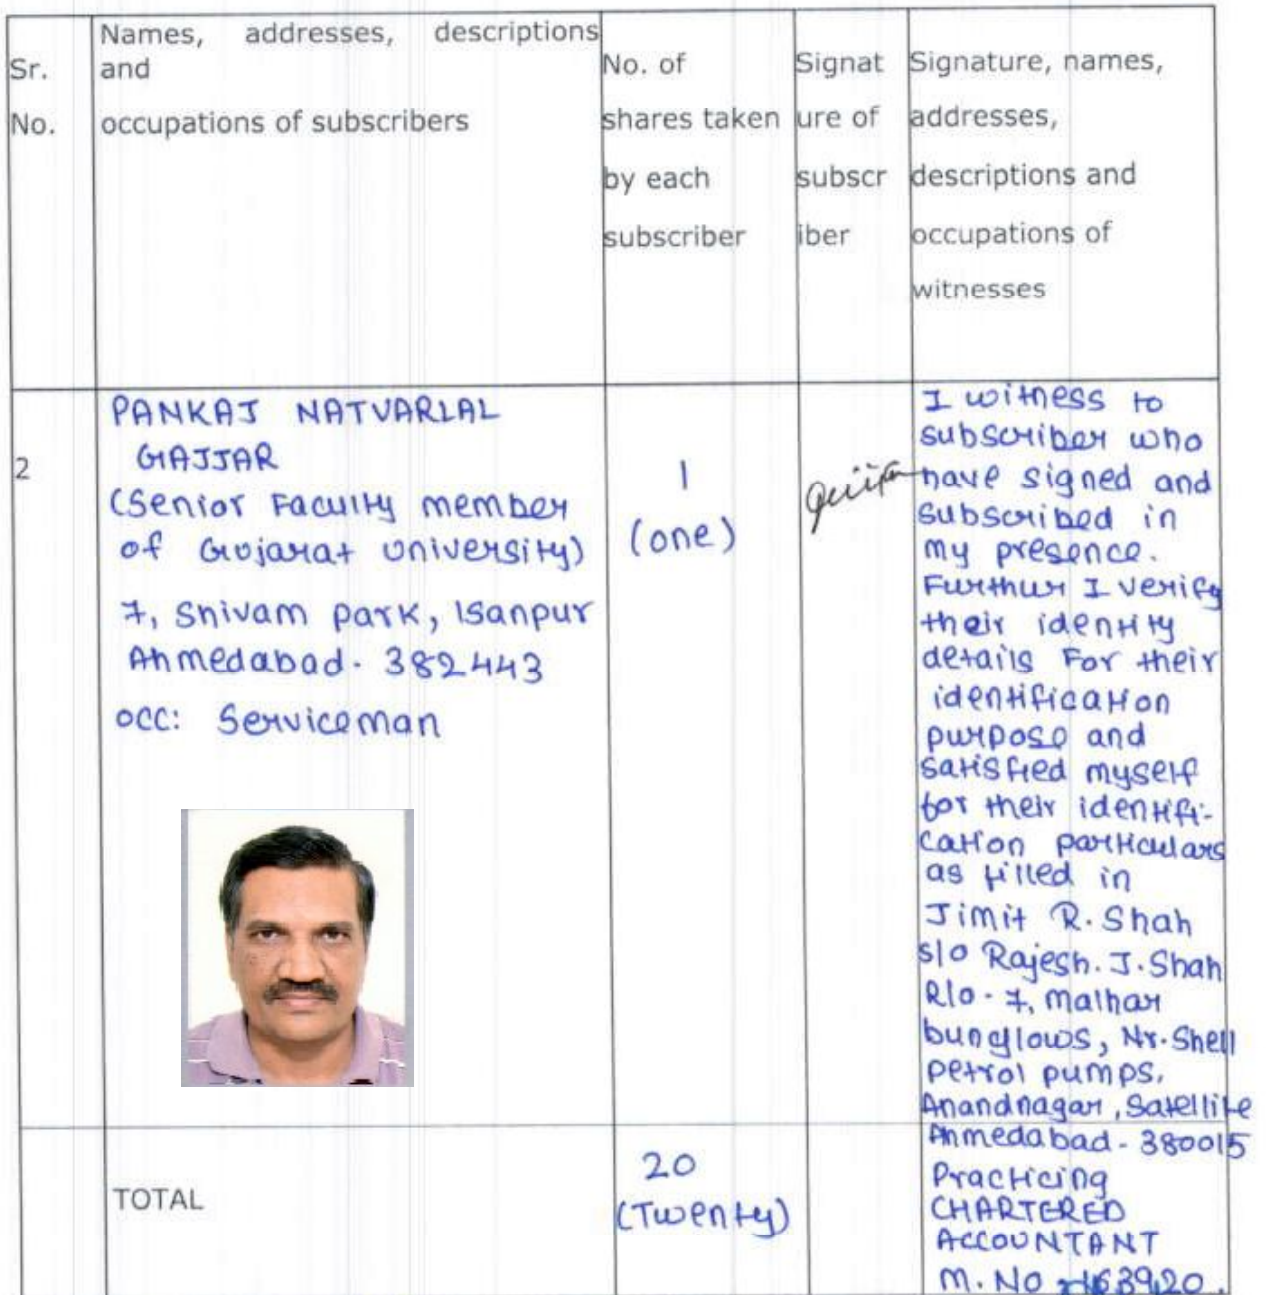 Sr.
No.
Names, addresses, descriptions
and
occupations of subscribers
No. of
shares taken
by each
subscriber
Signat
ure of
subscr
iber
Signature, names,
addresses,
descriptions and
occupations of
witnesses
2
PANKAJ NATVARLAL
GAJJAR
(Senior Faculty member
of Gujarat University)
7, Shivam park, Isanpur
Ahmedabad. 382443
occ: Serviceman
1
(one)
I witness to
subscriber who
have signed and
subscribed in
my presence.
Furthur I verify
their identity
details For their
identification
purpose and
satisfied myself
for their identifi-
cation particulars
as filled in
Jimit R. Shah
S/o Rajesh. J. Shah
R/o. 7, Malhar
bunglows, Nr. Shell
petrol pumps,
Anandnagar, Satellite
Ahmedabad - 380015
Practicing
CHARTERED
ACCOUNTANT
M. No 163920.
TOTAL
20
(Twenty)